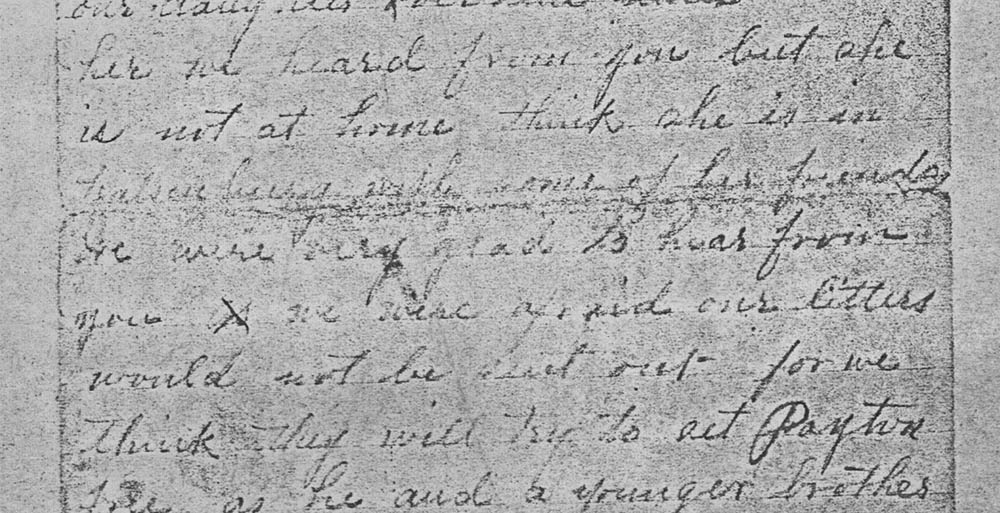 our daughter
her we heard from you but she
is not at home think she is in
with some of her friends
We were very glad to hear from
you X we were afraid our letters
would not be sent out for we
think they will try to get Payton
as he and a younger brother